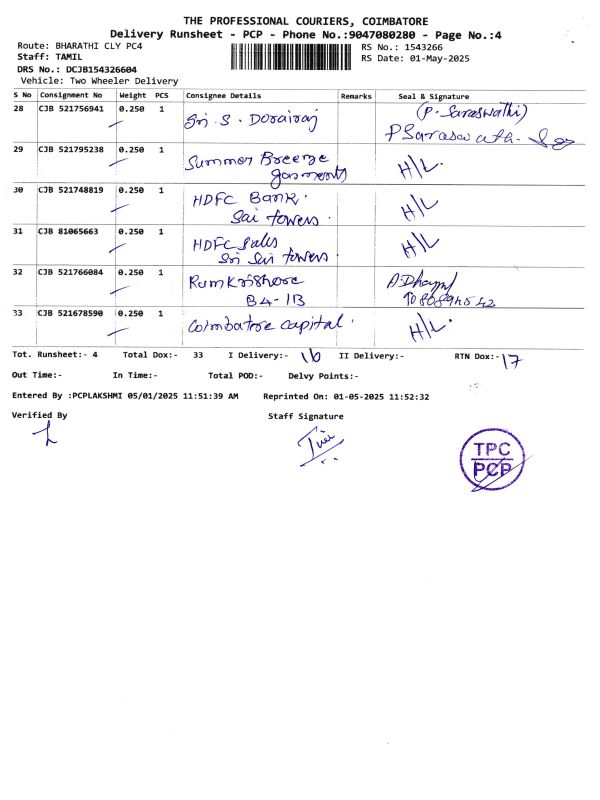 THE PROFESSIONAL COURIERS, COIMBATORE
Delivery Runsheet - PCP - Phone No.:9047080280 - Page No.:4
Route: BHARATHI CLY PC4 RS No.: 1543266
Staff: TAMIL RS Date: 01-May-2025
DRS No.: DCJB154326604
Vehicle: Two Wheeler Delivery
S No Consignment No Weight PCS Consignee Details Remarks Seal & Signature
28 CJB 521756941 0.250 1 Sri. S. Dorairaj (P. Saraswathi)
P Saraswathi
29 CJB 521795238 0.250 1 Summer Breeze H/L.
garments
30 CJB 521748819 0.250 1 HDFC Bank. H/L
Sai towers.
31 CJB 81065663 0.250 1 HDFC Sales H/L
Sri Sai towers.
32 CJB 521766084 0.250 1 Ramkrishore
B4-1B
33 CJB 521678590 0.250 1 Coimbatore capital. H/L.
Tot. Runsheet:- 4 Total Dox:- 33 I Delivery:- 16 II Delivery:- RTN Dox:- 17
Out Time:- In Time:- Total POD:- Delvy Points:-
Entered By :PCPLAKSHMI 05/01/2025 11:51:39 AM Reprinted On: 01-05-2025 11:52:32
Verified By Staff Signature
TPC
PCP